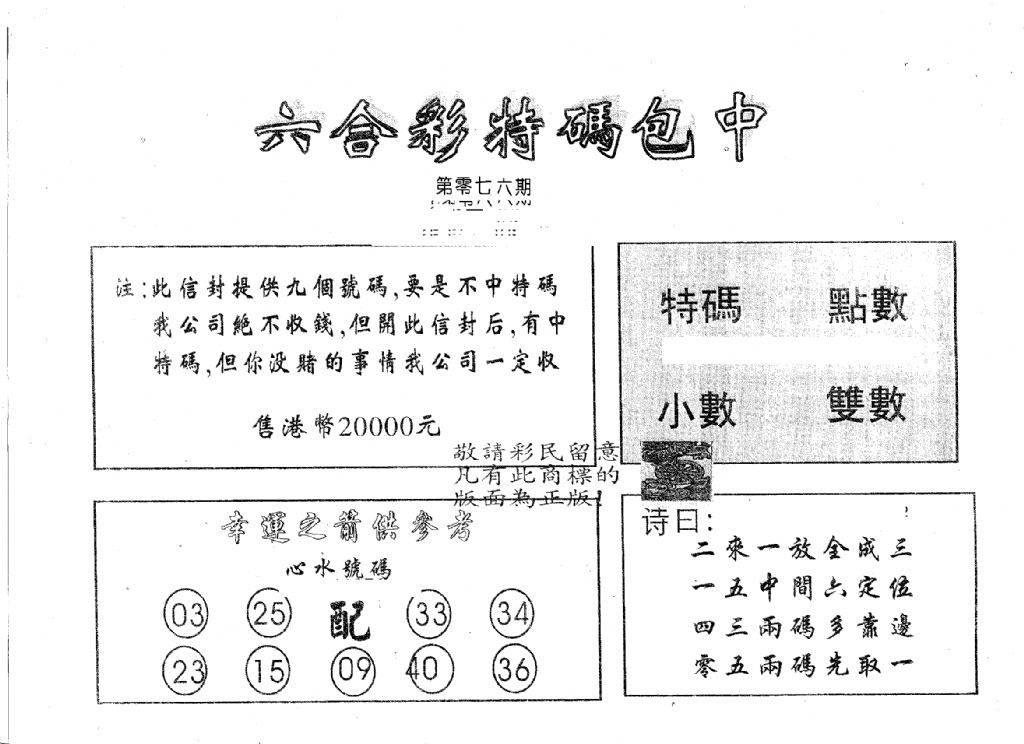 六合彩特碼包中
第零七六期
注:此信封提供九個號碼,要是不中特碼
我公司絕不收錢,但開此信封后,有中
特碼,但你没賭的事情我公司一定收
售港幣20000元
特碼 點數
小數 雙數
敬請彩民留意
凡有此商標的
版面為正版!
幸運之箭供參考
心水號碼
03 25 配 33 34
23 15 09 40 36
诗曰:
二來一放全成三
一五中間六定位
四三兩碼多靠邊
零五兩碼先取一